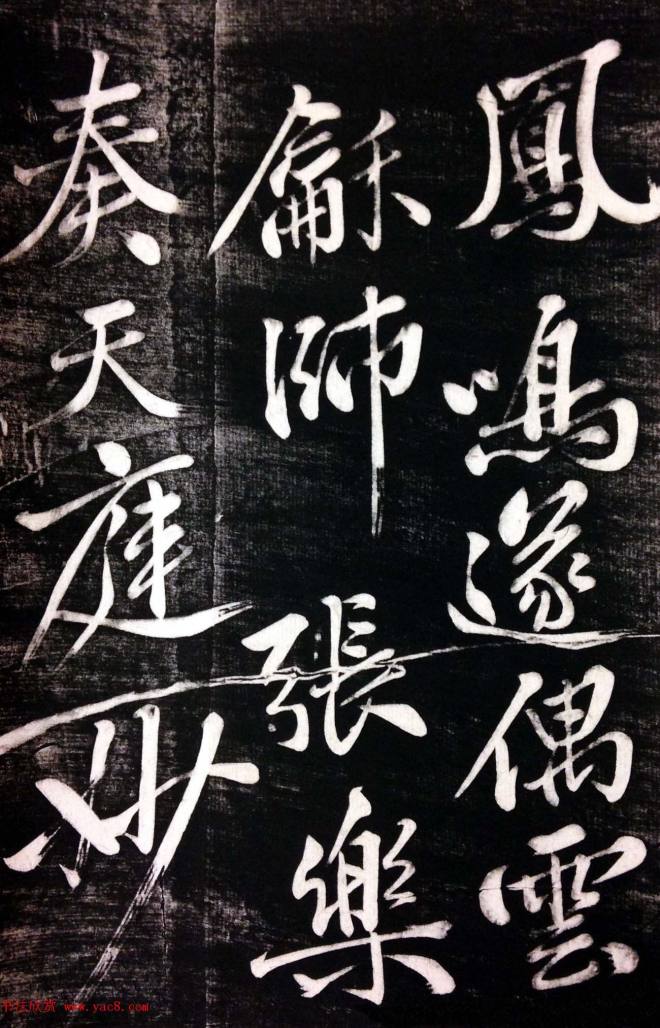 鳳鳴遂偶雲
龢師張樂
奏天庭妙
书法欣赏 www.yac8.com